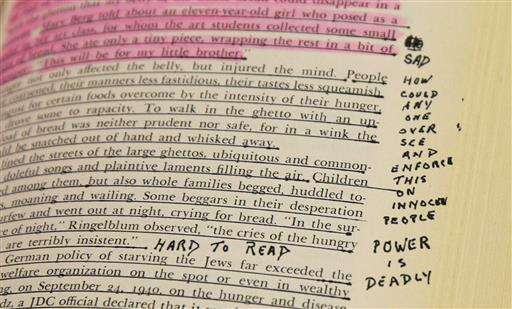 that my                     could disappear in a
Mary Berg told about an eleven-year-old girl who posed as a
art class, for whom the art students collected some small
She ate only a tiny piece, wrapping the rest in a bit of
This will be for my little brother."
not only affected the belly, but injured the mind. People
their manners less fastidious, their tastes less squeamish
for certain foods overcome by the intensity of their hunger
some to rapacity. To walk in the ghetto with an un-
of bread was neither prudent nor safe, for in a wink the
be snatched out of hand and whisked away.
the streets of the large ghettos, ubiquitous and common-
doleful songs and plaintive laments filling the air. Children
among them, but also whole families begged, huddled to-
moaning and wailing. Some beggars in their desperation
and went out at night, crying for bread. "In the sur-
of night," Ringelblum observed, "the cries of the hungry
are terribly insistent." HARD TO READ
German policy of starving the Jews far exceeded the
welfare organization on the spot or even in wealthy
on September 24, 1940, on the hunger and disease
a JDC official declared that it
SAD
HOW
COULD
ANY
ONE
OVER
SEE
AND
ENFORCE
THIS
ON
INNOCEN
PEOPLE
POWER
IS
DEADLY